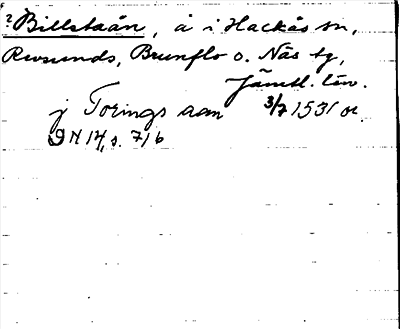 ? Billstaån, å i Hackås sn,
Revsunds, Brunflo o. Näs tg,
Jämtl. län.
j Torings aan 3/7 1531 or.
DN 14, s. 716